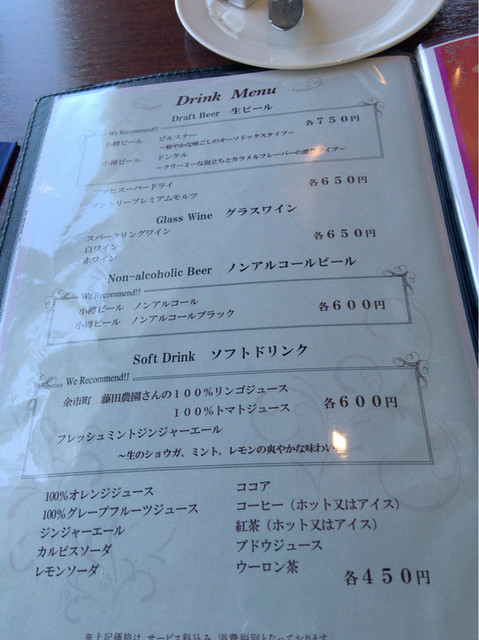 Drink Menu
Draft Beer 生ビール
We Recommend!!
小樽ビール ピルスナー 各750円
～軽やかな喉ごしのオーソドックスタイプ～
小樽ビール ドンケル
～クリーミーな泡立ちとカラメルフレーバーの
アサヒスーパードライ 各650円
サントリープレミアムモルツ
Glass Wine グラスワイン
スパークリングワイン
白ワイン 各650円
赤ワイン
Non-alcoholic Beer ノンアルコールビール
We Recommend!!
小樽ビール ノンアルコール 各600円
小樽ビール ノンアルコールブラック
Soft Drink ソフトドリンク
We Recommend!!
余市町 藤田農園さんの100%リンゴジュース 各600円
100%トマトジュース
フレッシュミントジンジャーエール
～生のショウガ、ミント、レモンの爽やかな味わい
100%オレンジジュース ココア
100%グレープフルーツジュース コーヒー（ホット又はアイス）
ジンジャーエール 紅茶（ホット又はアイス）
カルピスソーダ ブドウジュース
レモンソーダ ウーロン茶
各450円
※上記価格は、サービス料込み、消費税別となっております。